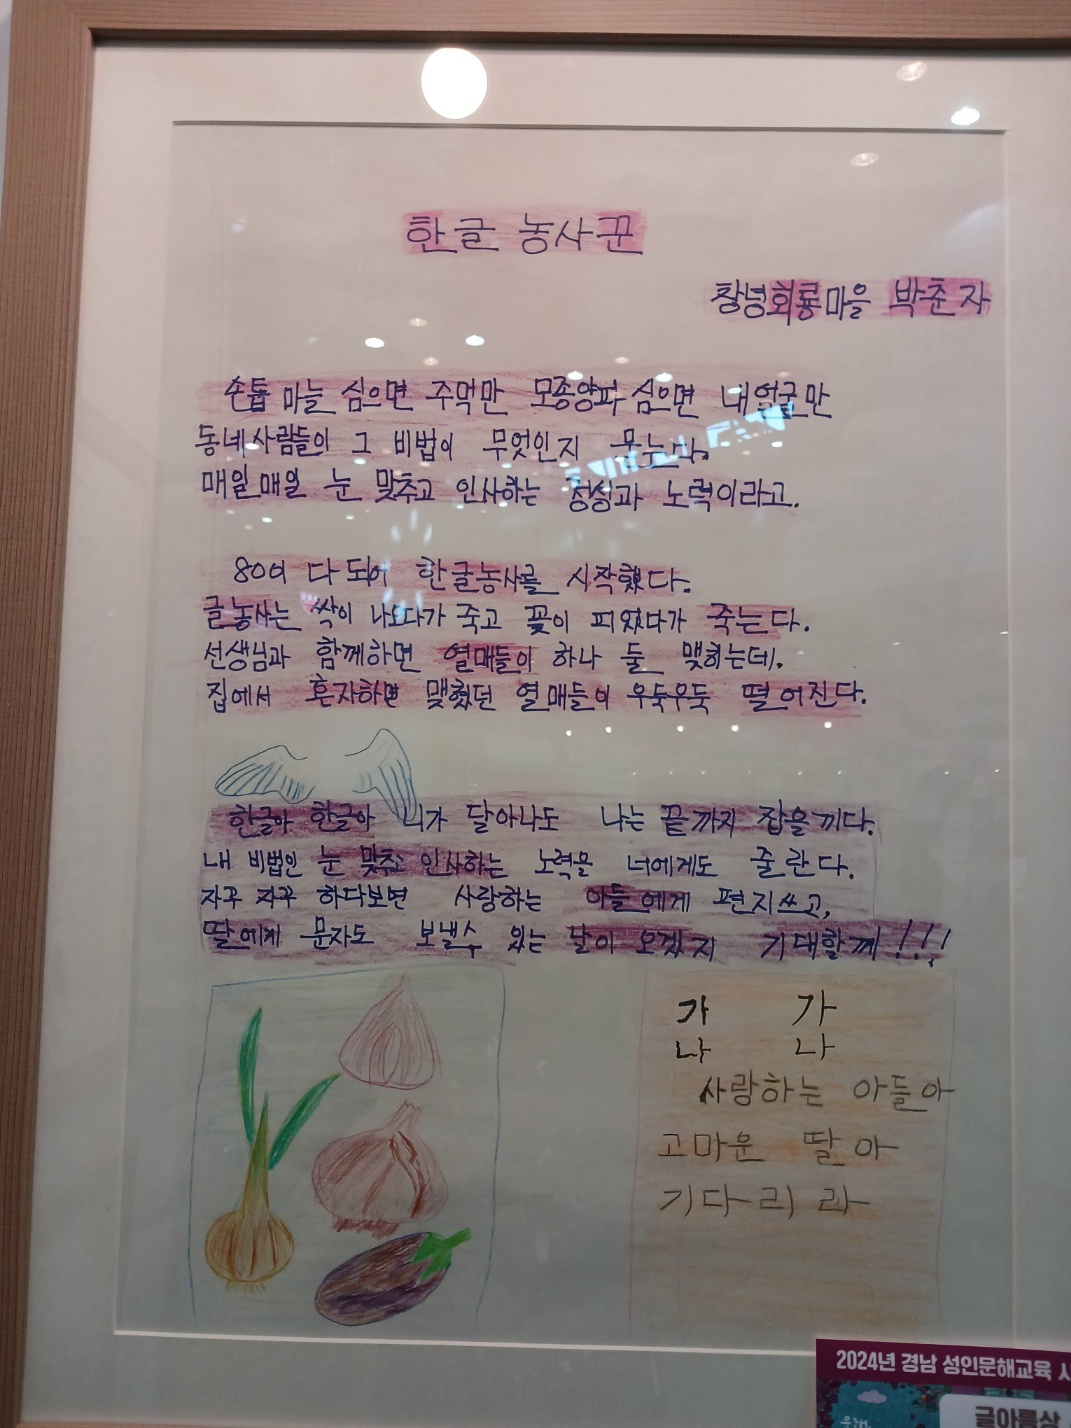 한글 농사꾼
창녕회룡마을 박춘자
손톱 마늘 심으면 주먹만 모종양파 심으면 내얼굴만
동네사람들이 그 비법이 무엇인지 묻는다.
매일매일 눈 맞추고 인사하는 정성과 노력이라고.
80이 다되어 한글농사를 시작했다.
글농사는 싹이 나오다가 죽고 꽃이 피었다가 죽는다.
선생님과 함께하면 열매들이 하나 둘 맺히는데.
집에서 혼자하면 맺혔던 열매들이 우둑우둑 떨어진다.
한글아 한글아 니가 달아나도 나는 끝까지 잡을끼다.
내 비법인 눈 맞추고 인사하는 노력을 너에게도 줄란다.
자꾸 자꾸 하다보면 사랑하는 아들에게 편지쓰고,
딸에게 문자도 보낼수 있는 날이 오겠지 기대할께!!!
가 가
나 나
사랑하는 아들아
고마운 딸아
기다리라
2024년 경남 성인문해교육
글아름상